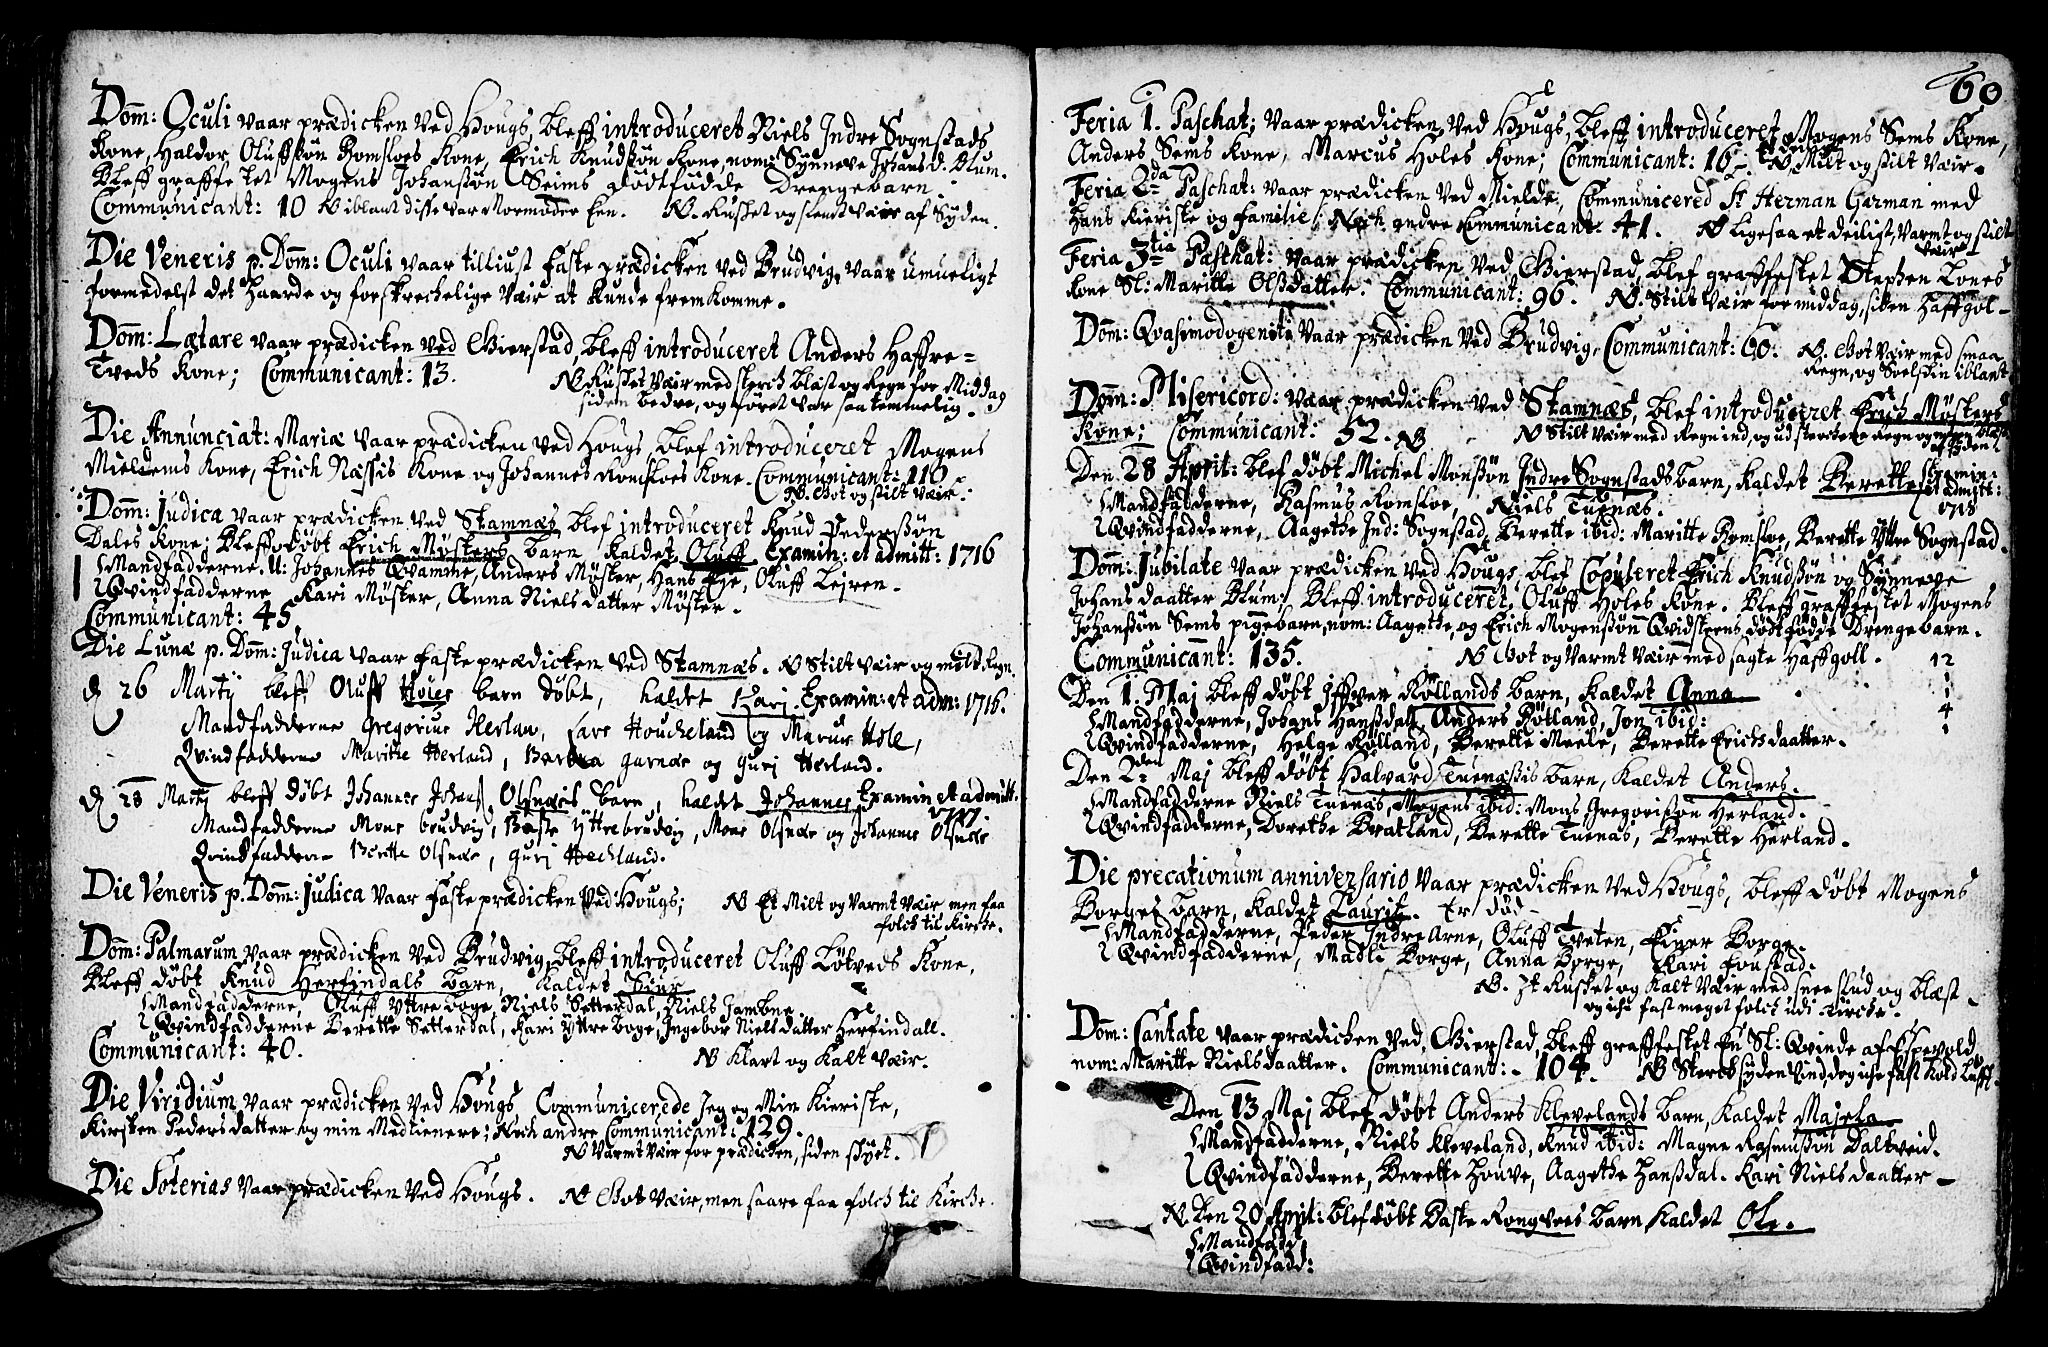 Dom: Oculi vaar prædicken ved Hougs, bleff introduceret Niels Indre Sognstads
Kone, Haldor Oluffsøn Romsloes Kone, Erich Knudsøn Kone, nom: Synneve Johansd. Blum.
Bleff graffestet Mogens Johansøn Seims dødfødde Drengebarn.
Communicant: 10 N iblant disse var Mormoder Een. N. Rusket og slemt Væir af Syden.
Die Veneris p. Dom: Oculi vaar tilliust faste prædicken ved Brudvig, vaar umueligt
formedelst det haarde og forskreckelige Væir at kunde fremkomme.
Dom: Lætare vaar prædicken ved Gierstad, bleff introduceret Anders Haffre-
Tveds Kone; Communicant: 13. N Rusket Væir med sterch blæst og Regn for Middag
siden bedre, og føret var saa temmelig.
Die Annunciat: Mariæ vaar prædicken ved Hougs, blef introduceret Mogens
Mieldems Kone, Erich Næssis Kone og Johannes Romsloes Kone. Communicant: 110.
N. Got og stilt Væir.
Dom: Judica vaar prædicken ved Stamnæs, blef introduceret Knud Pedersøn
Dales Kone; Bleff døbt Erich Møsters barn kaldet Oluff Examin: et admitt: 1716
Mandfadderne. Johannes Qvamme, Anders Møster, Hans Eye, Oluff Leiren.
Qvindfadderne Kari Møster, Anna Nielsdatter Møster.
Communicant: 45
Die Lunæ p. Dom: Judica vaar faste prædicken ved Stamnæs. N Stilt Væir og mild Regn.
D 26 Martij bleff Oluff Høies barn døbt, kaldet Kari. Examin: et adm: 1716.
Mandfadderne Gregorius Herlan, Lars Houckeland og Marcus Hole,
Qvindfadderne Maritte Herland, Barbra Garnæs og Gurj Herland.
D 28 Martij bleff døbt Johannes Johans. Olsnæs barn, kaldet Johannes. Examin et admitt.
1717.
Mandfadderne Mons brudvig, Baste Yttrebrudvig, Mons Olsnæs og Johannes Olsnæs
Qvindfadder- Berette Olsnæs, Gurj Heckland.
Die Veneris p. Dom: Judica vaar Faste prædicken ved Hougs; N Et Milt og Varmt Væir men faa
folck til Kircke.
Dom: Palmarum vaar prædicken ved Brudvig, bleff introduceret Oluff Løtveds Kone,
Bleff døbt Knud Herfindals barn, kaldet Siur
Mandfadderne, Oluff Yttre boge, Niels Setterdal, Niels Jambne.
Qvindfadderne Berette Setterdal, Kari Yttre boge, Ingebor Nielsdatter Herfindall.
Communicant: 40. N Klart og kalt Væir.
Die Viridium vaar prædicken ved Hougs, Communicerede Jeg og Min Kieriste,
Kirsten Pedersdatter og min Medtienere; Noch andre Communicant: 129.
N Varmt Væir for prædicken, siden skyet.
Die Soterias vaar prædicken ved Hougs. N Got Væir, men saare faa folck til Kircke.
60
Feria 1. Paschat; vaar prædicken ved Hougs, bleff introduceret Mogens Sems Kone,
Anders Sems Kone, Marcus Holes Kone; Communicant: 16. N. Milt og stilt Væir.
Feria 2da Paschat: vaar prædicken ved Mielde, Communicered Sr Herman Garman med
hans Kieriste og familie; Noch andre Communicant. 41. N Ligesaa et deiligt, Varmt og stilt
Væir
Feria 3tia Paschat: vaar prædicken ved Gierstad, blef graffestet Stephen Lones
Kone Sl: Maritte Olsdatter. Communicant: 96. N. Stilt Væir formiddag, siden Haffgol-
Dom: Qvasimodogeniti vaar prædicken ved Brudvig, Communicant: 60. N. Got Væir med smaa
Regn, og Soelskin iblant
Dom: Misericord: vaar prædicken ved Stamnæs, blef introduceret Erich Møsters
Kone; Communicant: 52. N N Stilt Væir med Regn ind, og ud sterchere Regn og blæst
af Syden.
Den 28 April: blef døbt Michel Monssøn Indre Sognstads barn, kaldet Berette. Examin:
et admitt:
1718
Mandfadderne, Rasmus Romsloe, Niels Tuenæs.
Qvindfadderne, Aagethe Ind: Sognstad, Berette ibid: Maritte Romsloe, Berette Yttre Sognstad.
Dom: Jubilate vaar prædicken ved Hougs, blef Copuleret Erich Knudssøn og Synneve
Johans daatter Blum; Bleff introduceret, Oluff Holes Kone. Bleff graffestet Mogens
Johanssøn Sems pigebarn, nom: Aagethe, og Erich Mogenssøn Qvidsteens dødfødde Drengebarn.
Communicant: 135. N Got og Varmt Væir med sagte Haffgoll.
12
1
1
4
1
Den 1. Maj bleff døbt Iffver Røllands barn, kaldet Anna
Mandfadderne, Johans Hanssdal, Anders Rølland, Jon ibid:
Qvindfadderne, Helge Rølland, Berette Meele, Berette Erichsdaatter.
Den 2den Maj bleff døbt Halvard Tuenæssis barn, kaldet Anders.
Mandfadderne Niels Tuenæs, Mogens ibid: Mons Gregorisøn Herland.
Qvindfadderne, Dorethe Bratland, Berette Tuenæs, Berette Herland.
Die precationum anniversario vaar prædicken ved Hougs, bleff døbt Mogens
Borges barn, kaldet Lauritz. Er død-
Mandfadderne, Peder Indre Arne, Oluff Tveten, Einer Borge.
Qvindfadderne, Madli Borge, Anna Borge, Kari Fonstad.
N. It Rusket og kalt Væir med snee slud og blæst
og icke fast meget folck udi Kircke.
Dom: Cantate vaar prædicken ved Gierstad, bleff graffestet En Sl: Qvinde af Espevold
nom: Maritte Nielsdaatter. Communicant: - 104. N Sterck synden Vind, dog icke fast kold Lufft.
Den 13 Maj blef døbt Anders Klevelands barn, kaldet Marcla
Mandfadderne, Niels Kleveland, Knud ibid: Magne Rasmussøn Daltveid.
Qvindfadderne, Berette Houve, Aagethe Hanssdal. Kari Nielsdaatter -
N. Den 20 April: blef døbt Baste Rongves barn kaldet Ole.
Mandfadd:
Qvindfadd: